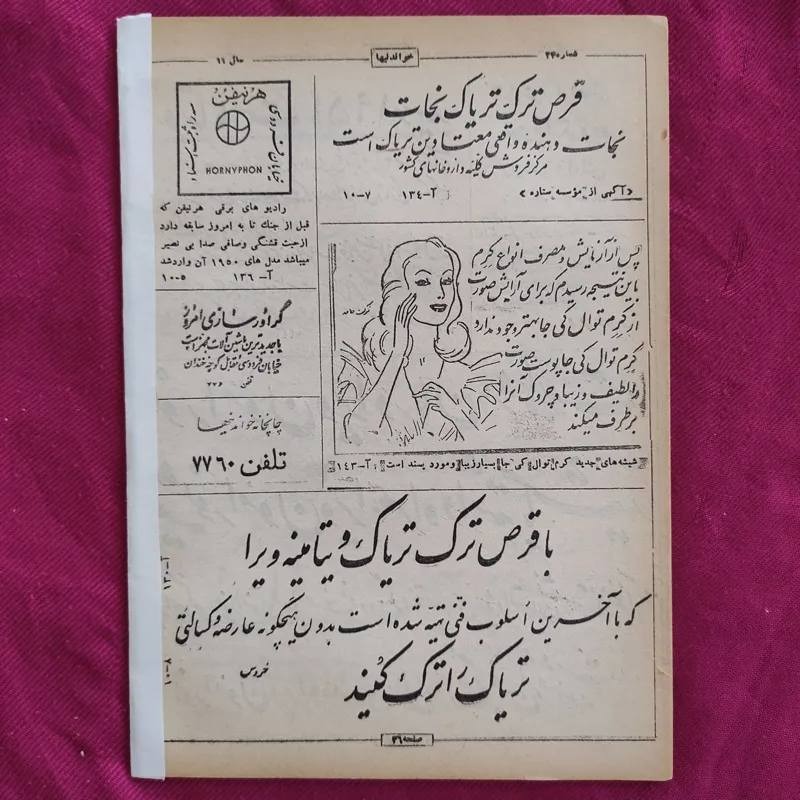 شماره ۲۴
خواندنیها
سال ۱۱
قرص ترک تریاک نجات
نجات دهنده واقعی معتادین تریاک است
مرکز فروش کلیه داروخانهای کشور
«آگهی از مؤسسه ستاره»
آ-۱۳٤
۱۰-۷
هرنیفن
HORNYPHON
رادیو های برقی هرنیفن که
قبل از جنك تا به امروز سابقه دارد
ازحیث قشنگی وصافی صدا بی نظیر
میباشد مدل های ۱۹۵۰ آن واردشد
آ-۱۳٦
۱۰-۵
پس از آزمایش و مصرف انواع کرم
باین نتیجه رسیدم که برای آرایش صورت
از کرم توال کی جا بهتر وجود ندارد
کرم توال کی جا پوست صورت
را لطیف و زیبا و چروک آنرا
برطرف میکند
شیشه‌های جدید کرم توال کی جا بسیار زیبا و مورد پسند است آ-۱٤۳
گراورسازی امروز
با جدیدترین ماشین آلات مجهز است
خیابان فردوسی مقابل کوچه خندان
تلفن
چاپخانه خواندنیها
تلفن ۷۷٦۰
با قرص ترک تریاک ویتامینه ویرا
که با آخرین اسلوب فنی تهیه شده است بدون هیچگونه عارضه و کسالتی
تریاک را ترک کنید
خروس
آ-۱۳۰
۱۰-۸
صفحه ۳٦